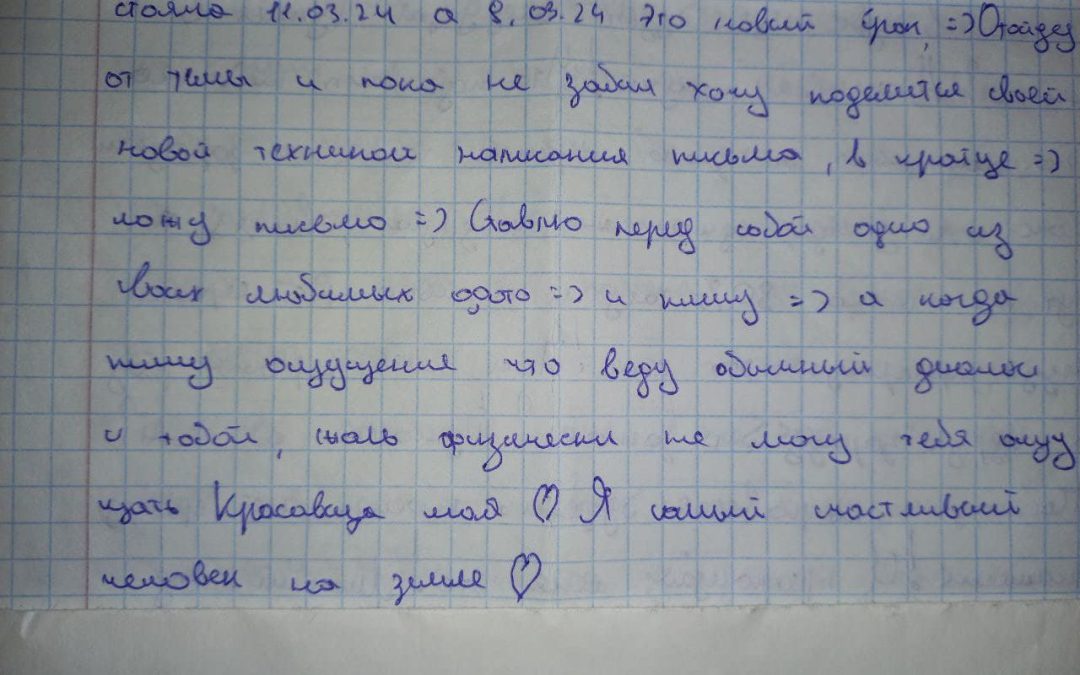 стояла 11.03.24 а 8.03.24 это новий срок, =) Отойду
от темы и пока не забил хочу поделится своей
новой техникой написания письма, в кратце =)
ложу письмо =) Ставлю перед собой одно из
своих любимых фото =) и пишу =) а когда
пишу ощущения что веду обычный диалог
с тобой, жаль физически не могу тебя ощу
щать Красавица моя ♡ Я самый счастливий
человек на земле ♡